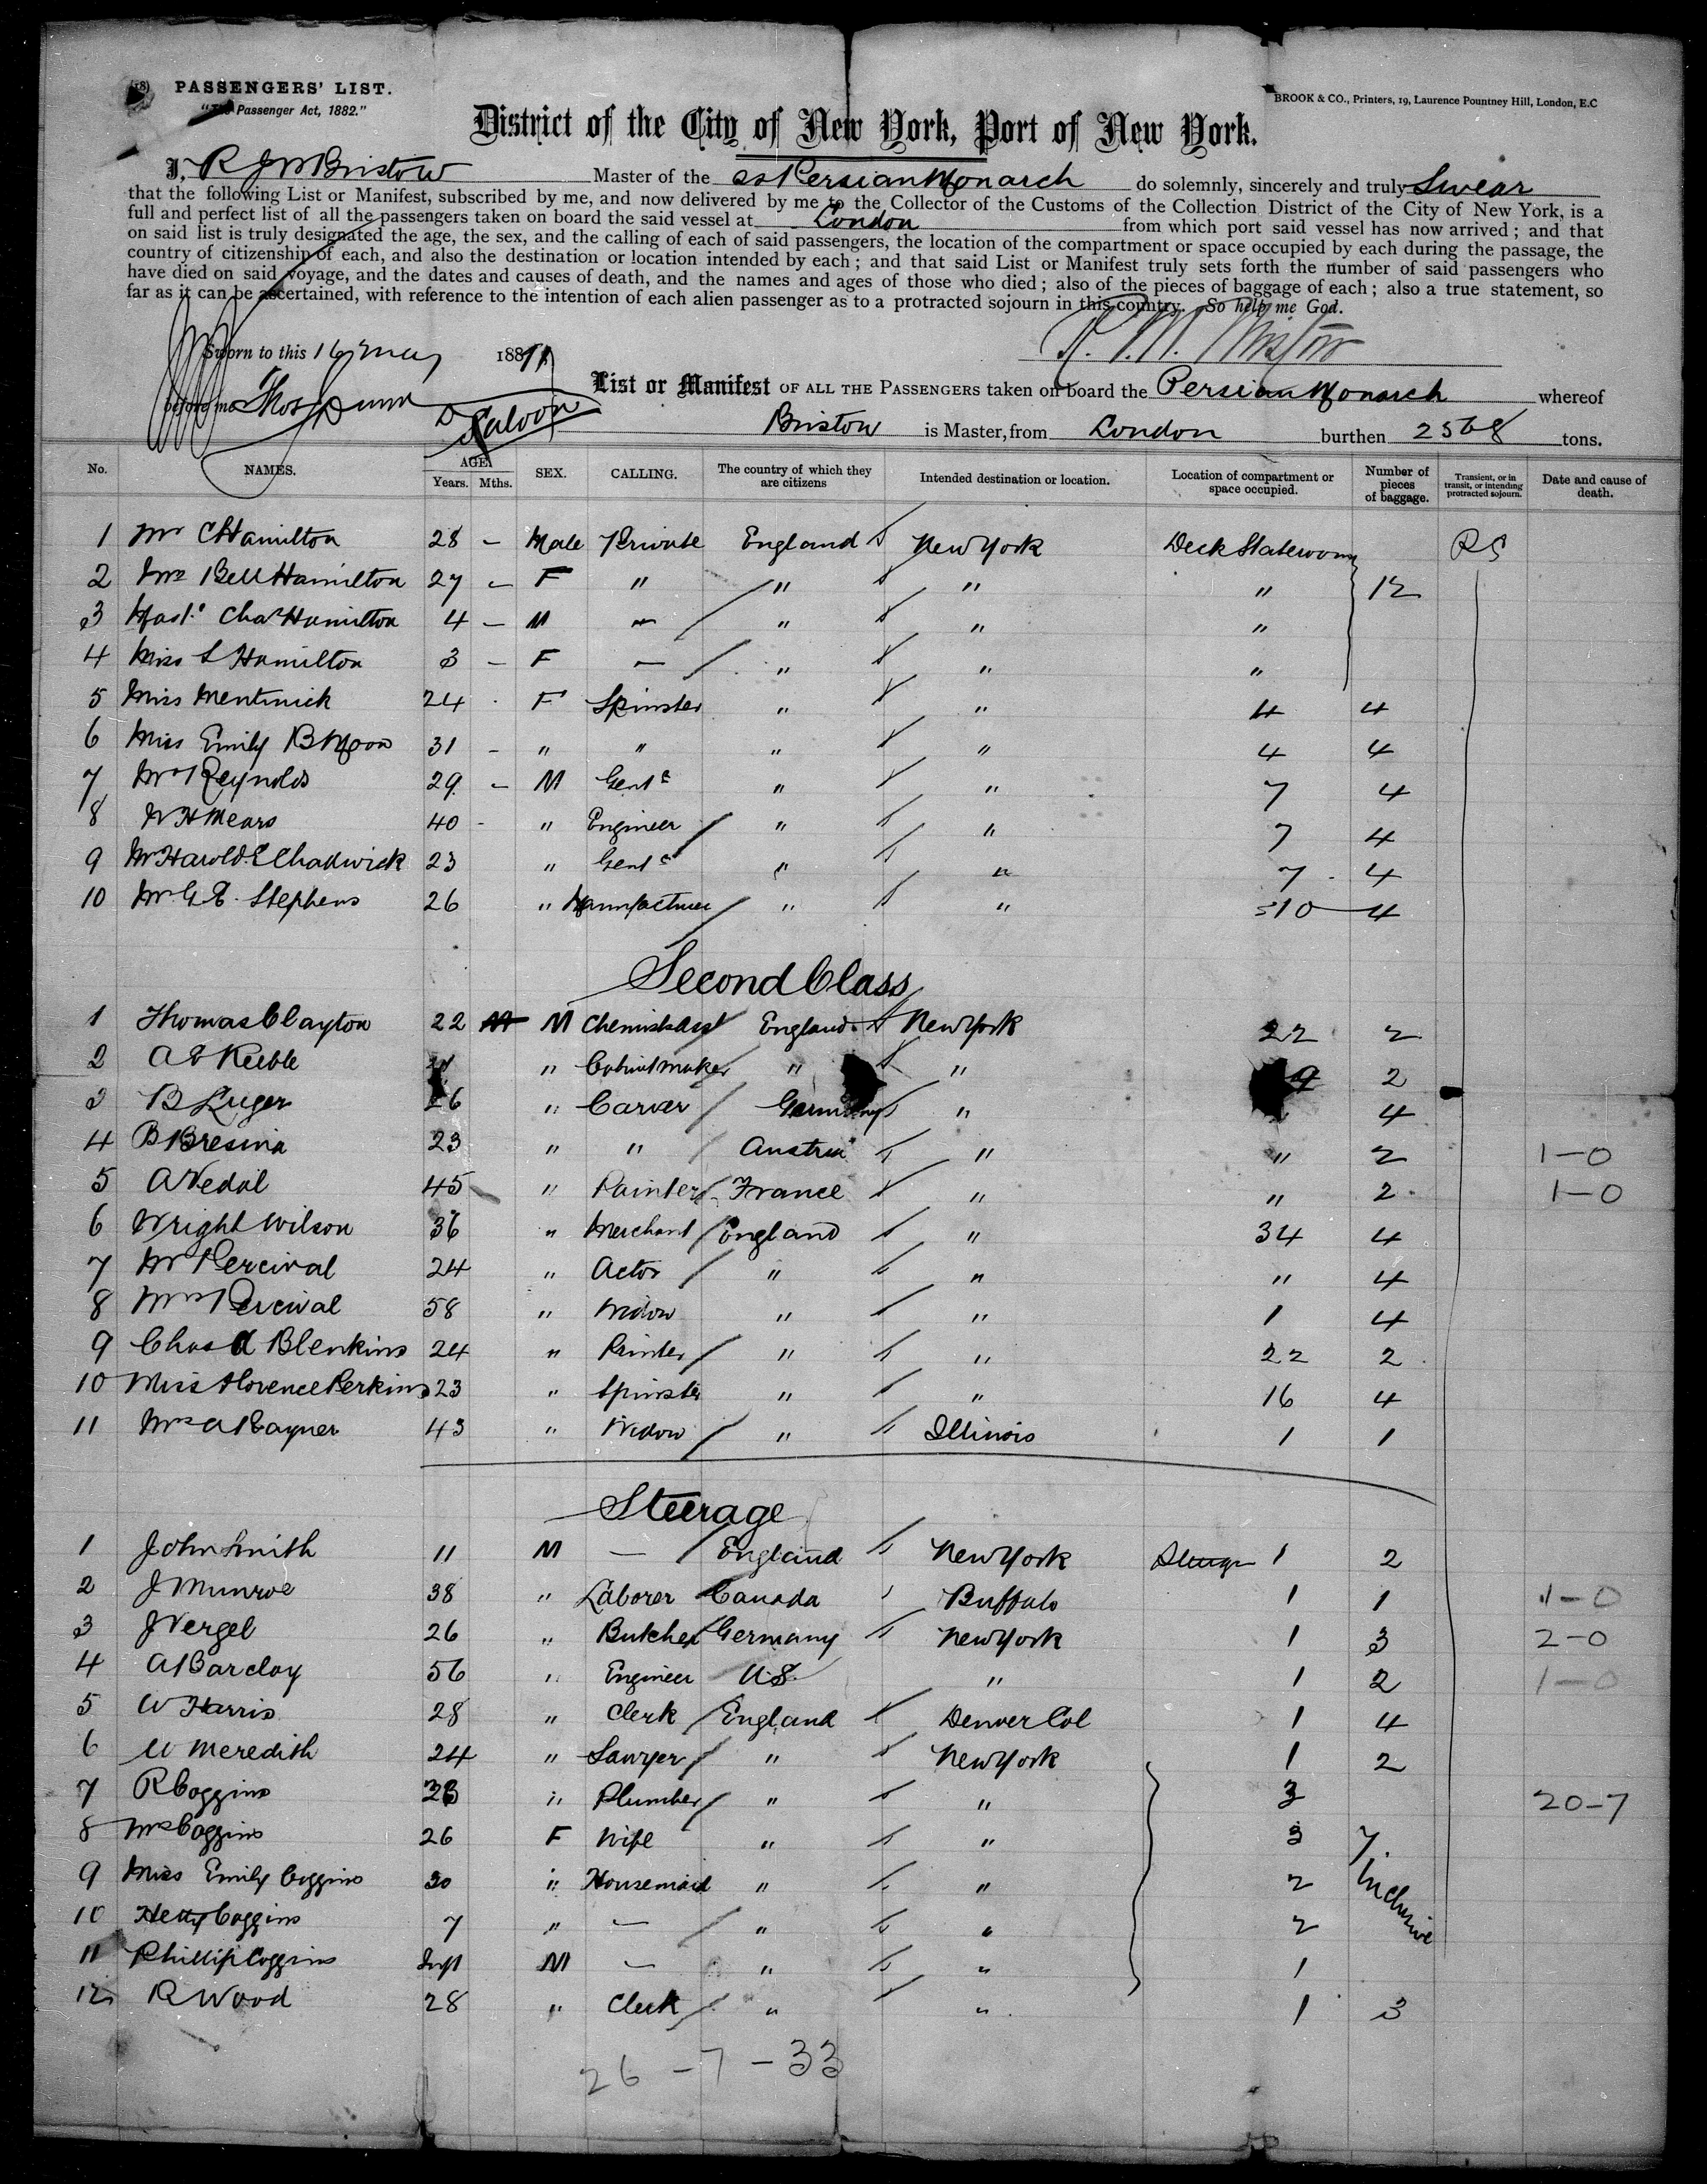 (18) PASSENGERS' LIST.
"The Passenger Act, 1882."
BROOK & CO., Printers, 19, Laurence Pountney Hill, London, E.C
District of the City of New York, Port of New York.
I, R J W Bristow Master of the SS Persian Monarch do solemnly, sincerely and truly Swear
that the following List or Manifest, subscribed by me, and now delivered by me to the Collector of the Customs of the Collection District of the City of New York, is a
full and perfect list of all the passengers taken on board the said vessel at London from which port said vessel has now arrived; and that
on said list is truly designated the age, the sex, and the calling of each of said passengers, the location of the compartment or space occupied by each during the passage, the
country of citizenship of each, and also the destination or location intended by each; and that said List or Manifest truly sets forth the number of said passengers who
have died on said voyage, and the dates and causes of death, and the names and ages of those who died; also of the pieces of baggage of each; also a true statement, so
far as it can be ascertained, with reference to the intention of each alien passenger as to a protracted sojourn in this country. So help me God.
Sworn to this 16 May 188
before me Thos Dunn
List or Manifest OF ALL THE PASSENGERS taken on board the Persian Monarch whereof
Saloon Bristow is Master, from London burthen 2568 tons.
No. NAMES. AGE. Years. Mths. SEX. CALLING. The country of which they are citizens Intended destination or location. Location of compartment or space occupied. Number of pieces of baggage. Transient, or in transit, or intending protracted sojourn. Date and cause of death.
1 Mr C Hamilton 28 – Male Private England New York Deck Stateroom PS
2 Mrs Bell Hamilton 27 – F " " " " 12
3 Mast. Chas Hamilton 4 – M – " " "
4 Miss L Hamilton 3 – F – " " "
5 Miss Mentinick 24 F Spinster " " 4 4
6 Miss Emily B Moon 31 – " " " " 4 4
7 Mr Reynolds 29 – M Gent " " 7 4
8 W H Mears 40 - " Engineer " " 7 4
9 Mr Harold E Chadwick 23 " Gent " " 7 4
10 Mr G E Stephens 26 " Manufacturer " " 10 4
Second Class
1 Thomas Clayton 22 M Chemists Asst England New York 22 2
2 A E Keeble " Cabinet maker " " 2
3 B Luger 26 " Carver Germany " 4
4 B Bresina 23 " " Austria " " 2 1–0
5 A Vedal 45 " Painter France " " 2 1–0
6 Wright Wilson 36 " Merchant England " 34 4
7 Mr Percival 24 " Actor " " " 4
8 Mrs Percival 58 " Widow " " 1 4
9 Chas A Blenkins 24 " Printer " " 22 2
10 Miss Florence Perkins 23 " Spinster " " 16 4
11 Mrs A Rayner 43 " Widow " Illinois 1 1
Steerage
1 John Smith 11 M – England New York 1 2
2 J Munroe 38 " Laborer Canada Buffalo 1 1 1–0
3 J Vergel 26 " Butcher Germany New York 1 3 2–0
4 A Barclay 56 " Engineer U.S. " 1 2 1–0
5 W Harris 28 " Clerk England Denver Col 1 4
6 W Meredith 24 " Sawyer " New York 1 2
7 R Coggins " Plumber " " 3 20–7
8 Mrs Coggins 26 F Wife " " 3 7.
9 Miss Emily Coggins 20 " Housemaid " " 2 Inclusive
10 Hetty Coggins 7 " – " " 2
11 Phillip Coggins Inft M – " " 1
12 R Wood 28 " Clerk " " 1 3
26 – 7 – 33